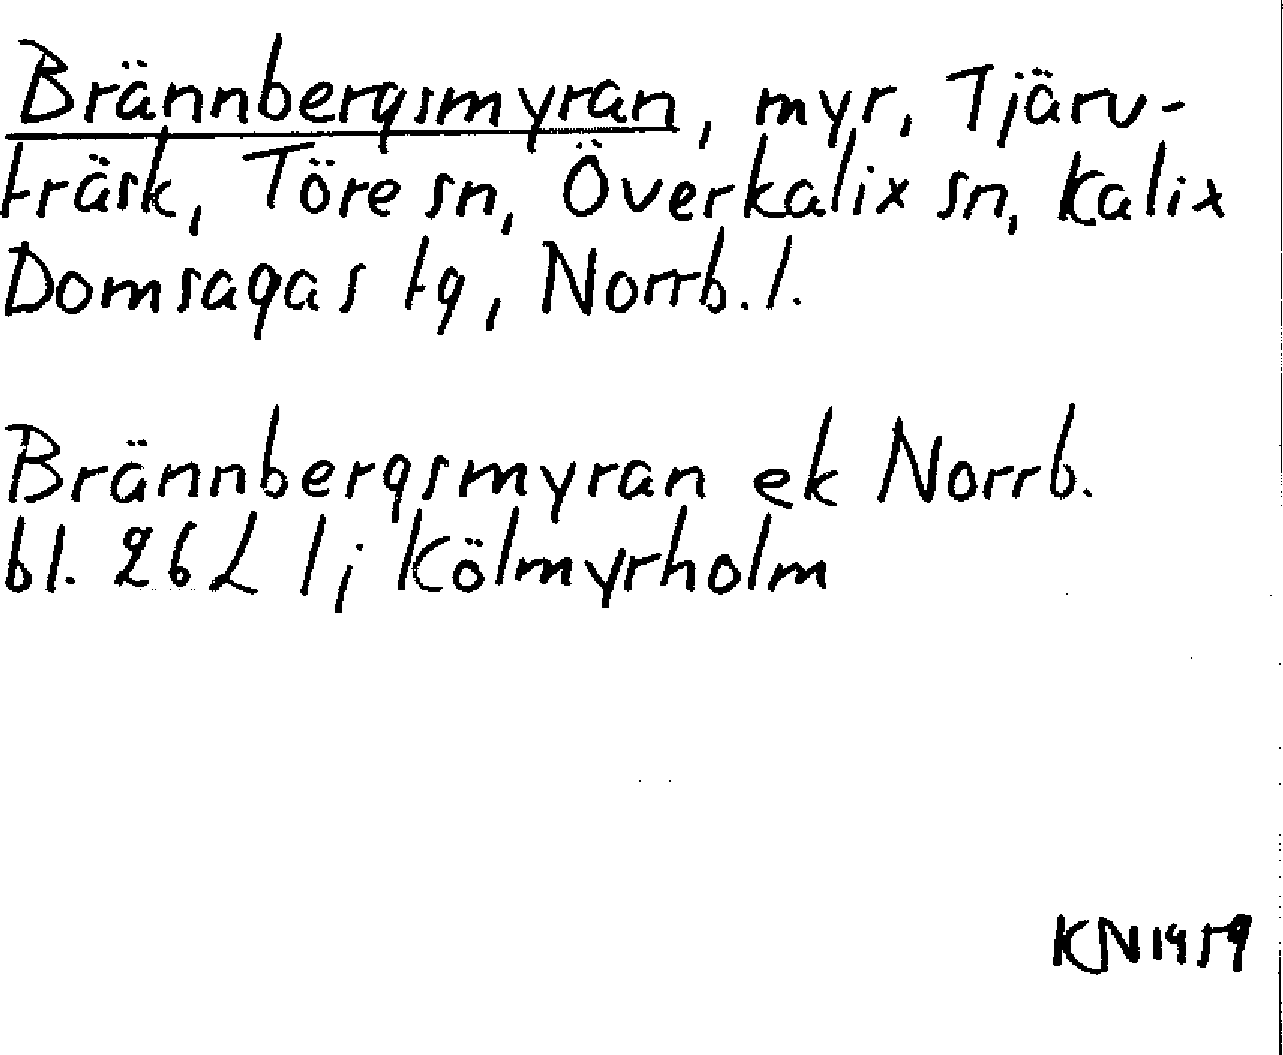 Brännbergsmyran, myr, Tjärv-
träsk, Töre sn, Överkalix sn, Kalix
Domsagas tg, Norrb. l.
Brännbergsmyran ek Norrb.
bl. 26 L 1; Kölmyrholm
KN 1959